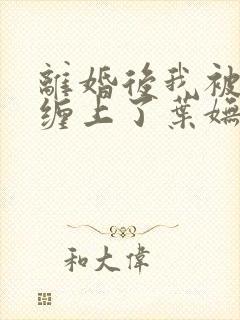 離婚後我被
纏上了葉嫵
和大偉